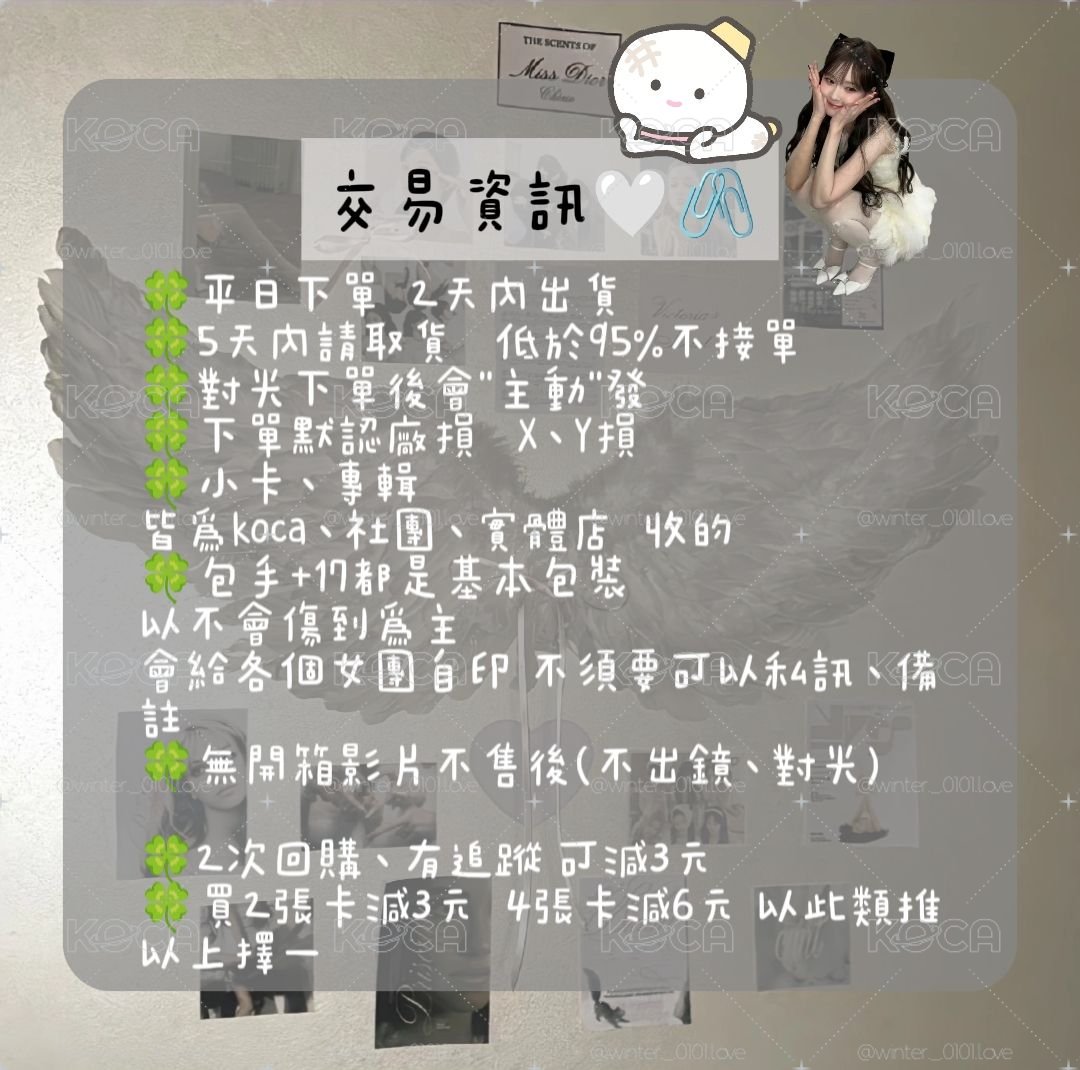 THE SCENTS OF
Miss Dior
Chérie
交易資訊
平日下單 2天內出貨
5天內請取貨 低於95%不接單
對光下單後會"主動"發
下單默認廠損 X、Y損
小卡、專輯
皆為koca、社團、實體店 收的
包手+17都是基本包裝
以不會傷到為主
會給各個女團自印 不須要可以私訊、備
註
無開箱影片不售後(不出鏡、對光)
2次回購、有追蹤 可減3元
買2張卡減3元 4張卡減6元 以此類推
以上擇一
KOCA
@winter_0101love
Victoria's